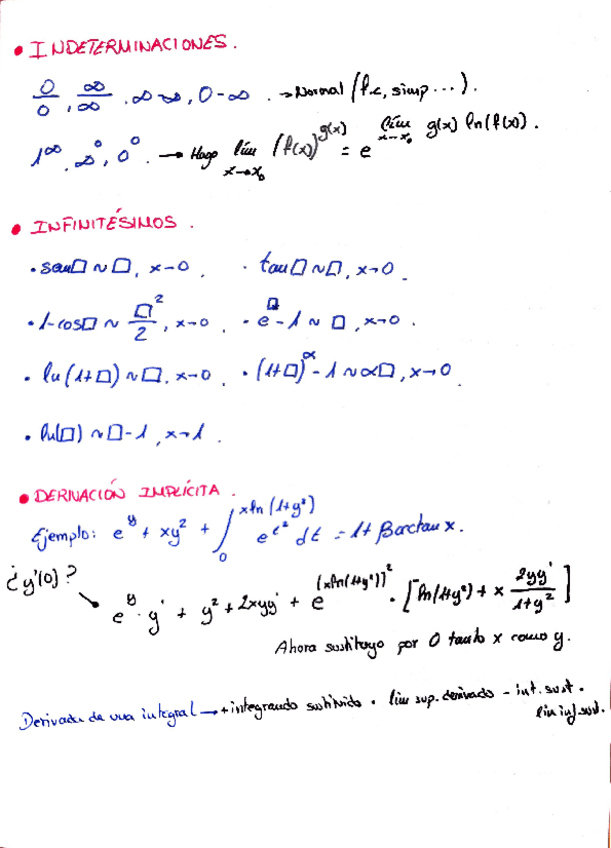 • INDETERMINACIONES.
0/0, ∞/∞, ∞-∞, 0-∞. → Normal (f.c, simp...).
1^∞, ∞^0, 0^0. → Hago lím_{x→x_0} (f(x))^{g(x)} = e^{lím_{x→x_0} g(x) ln(f(x))}.
• INFINITÉSIMOS.
• sen□ ~ □, x→0. • tan□ ~ □, x→0.
• 1-cos□ ~ □²/2, x→0. • e^□ - 1 ~ □, x→0.
• ln(1+□) ~ □, x→0. • (1+□)^α - 1 ~ α□, x→0.
• ln(□) ~ □-1, x→1.
• DERIVACIÓN IMPLÍCITA.
Ejemplo: e^y + xy² + ∫_0^{x ln(1+y²)} e^{t²} dt = 1 + βarctan x.
¿y'(0)?
→ e^y · y' + y² + 2xyy' + e^{(x ln(1+y²))²} · [ln(1+y²) + x 2yy'/(1+y²)]
Ahora sustituyo por 0 tanto x como y.
Derivada de una integral → + integrando sustituido · lim sup. derivado - int. sust.
lim inf sust.